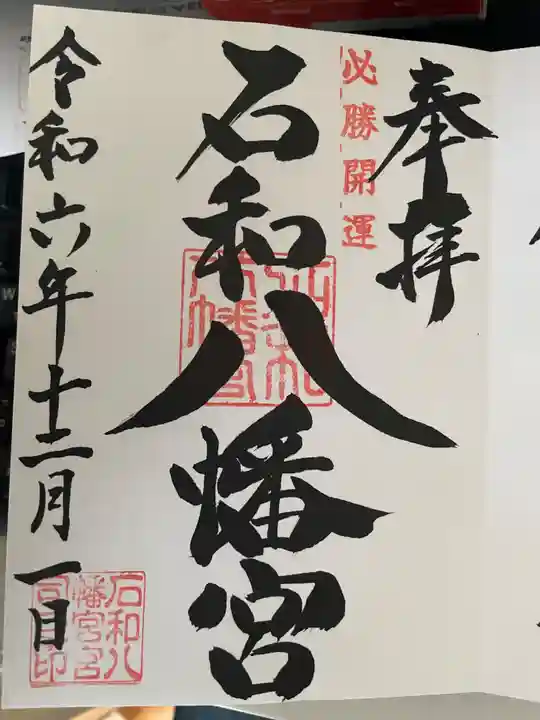 奉拝
必勝開運
石和八幡宮
令和六年十二月一日
石和八
幡宮宮
司印